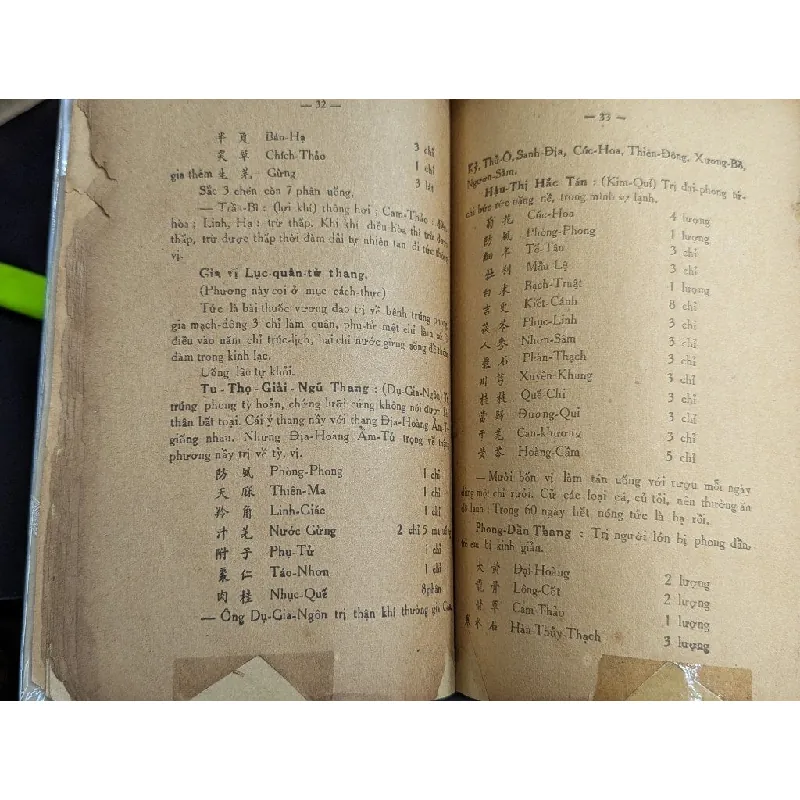 — 32 —
半 夏 Bán-Hạ 3 chỉ
炙 草 Chích-Thảo 1 chỉ
gia thêm 生 羌 Gừng 3 lát
Sắc 3 chén còn 7 phân uống.
— Trần-Bì : (lợi khí) thông hơi ; Cam-Thảo : điều
hòa ; Linh, Hạ : trừ thấp. Khí khi điều hòa thì trừ được
thấp, trừ được thấp thời đàm dãi tự nhiên tan đi tức thông
vị.
Gia vị Lục-quân-tử thang.
(Phương này coi ở mục cách-thực)
Tức là bài thuốc vương đạo trị về bệnh trúng phong
gia mạch-đông 3 chỉ làm quân, phụ-tử một chỉ làm sứ
điều vào năm chỉ trúc-lịch, hai chỉ nước gừng sống để thêm
đàm trong kinh lạc.
Uống lâu tự khỏi.
Tư - Thọ - Giải - Ngữ Thang : (Dụ-Gia-Ngôn) Trị
trúng phong tỳ hoãn, chứng lưỡi cứng không nói được
thân bất toại. Cái ý thang này với thang Địa-Hoàng Ẩm-Tử
giống nhau. Nhưng Địa-Hoàng Ẩm-Tử trọng về thận
phương này trị về tỳ, vị.
防 風 Phòng-Phong 1 chỉ
天 麻 Thiên-Ma 1 chỉ
羚 角 Linh-Giác 1 chỉ
汁 羌 Nước Gừng 2 chỉ 5
附 子 Phụ-Tử 1 chỉ
棗 仁 Táo-Nhơn 1 chỉ
肉 桂 Nhục-Quế 8 phân
— Ông Dụ-Gia-Ngôn trị thận khí thường gia
— 33 —
Kỷ, Thủ-Ô, Sanh-Địa, Cúc-Hoa, Thiên-Đông, Xương-Bồ,
Nguơn-Sâm.
Hầu-Thị Hắc Tán : (Kim-Quĩ) Trị đại-phong tứ-
chi bứt rứt nặng nề, trong mình sợ lạnh.
菊 花 Cúc-Hoa 4 lượng
防 風 Phòng-Phong 1 lượng
細 辛 Tế-Tân 3 chỉ
牡 蠣 Mẫu-Lệ 3 chỉ
白 朮 Bạch-Truật 1 lượng
吉 更 Kiết-Cánh 8 chỉ
茯 苓 Phục-Linh 3 chỉ
人 參 Nhơn-Sâm 3 chỉ
礬 石 Phàn-Thạch 3 chỉ
川 芎 Xuyên-Khung 3 chỉ
桂 枝 Quế-Chi 3 chỉ
當 歸 Đương-Qui 3 chỉ
干 羌 Can-Khương 3 chỉ
黃 芩 Hoàng-Cầm 5 chỉ
— Mười bốn vị làm tán uống với rượu mỗi ngày
dùng một chỉ rưỡi. Cử các loại cá, củ tỏi, nên thường ăn
đồ lạnh : Trong 60 ngày hết nóng tức là hạ rồi.
Phong-Dẫn Thang : Trị người lớn bị phong dẫn,
trẻ em bị kinh giản.
大 黃 Đại-Hoàng 2 lượng
龍 骨 Long-Cốt 2 lượng
甘 草 Cam-Thảo 1 lượng
寒 水 石 Hàn-Thủy-Thạch 3 lượng